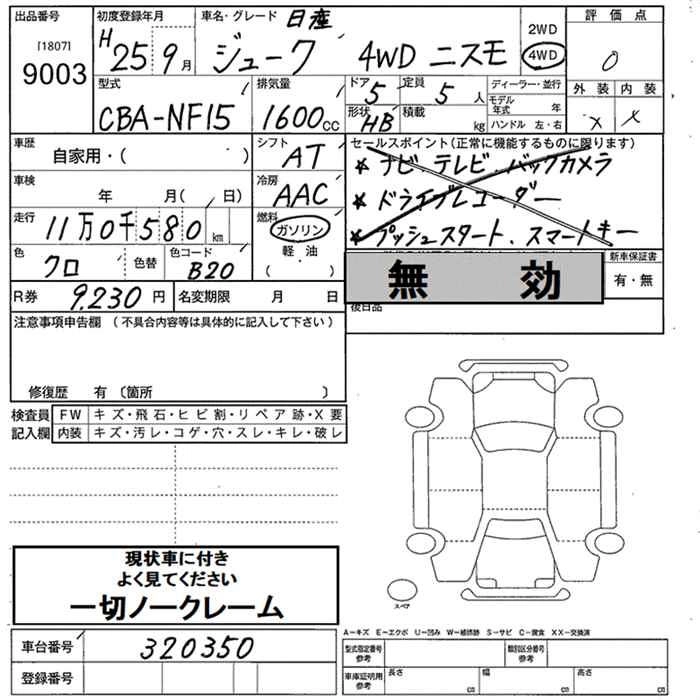 出品番号 [1807] 9003
初度登録年月 H 25年 9月
車名・グレード 日産 ジューク 4WD ニスモ
2WD 4WD
評価点 0
外装 × 内装 ×
型式 CBA-NF15
排気量 1600cc
ドア 5 定員 5人
形状 HB 積載 kg
ディーラー・並行
モデル年式 年
ハンドル 左・右
車歴 自家用・( )
シフト AT
セールスポイント(正常に機能するものに限ります)
★ ナビ.テレビ.バックカメラ
★ ドライブレコーダー
★ プッシュスタート.スマートキー
車検 年 月( 日)
冷房 AAC
走行 11万0千580 km
燃料 ガソリン 軽油 ( )
色 クロ 色替 色コード B20
無 効
新車保証書 有・無
R券 9,230円 名変期限 月 日
後日品
注意事項申告欄 (不具合内容等は具体的に記入して下さい)
修復歴 有 〔箇所 〕
検査員記入欄
FW キズ・飛石・ヒビ割・リペア跡・X要
内装 キズ・汚レ・コゲ・穴・スレ・キレ・破レ
現状車に付き
よく見てください
一切ノークレーム
スペア
A-キズ E-エクボ U-凹み W-補修跡 S-サビ C-腐食 XX-交換済
車台番号 320350
登録番号
型式指定番号 参考 類別区分番号 参考
車庫証明用 参考 長さ cm 幅 cm 高さ cm